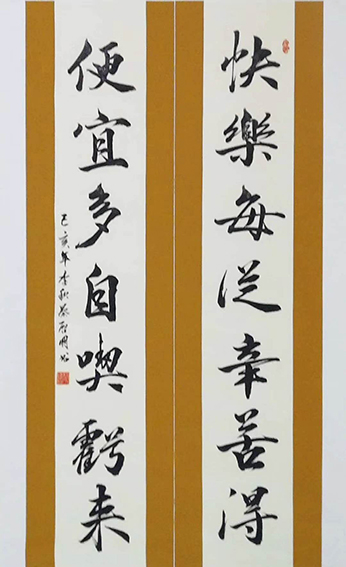 快樂每從辛苦得
便宜多自喫虧来
己亥年季秋蔡啟明书